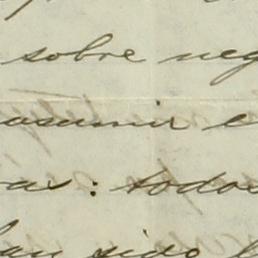 sobre neg
osumir e
as: todos
han sido l